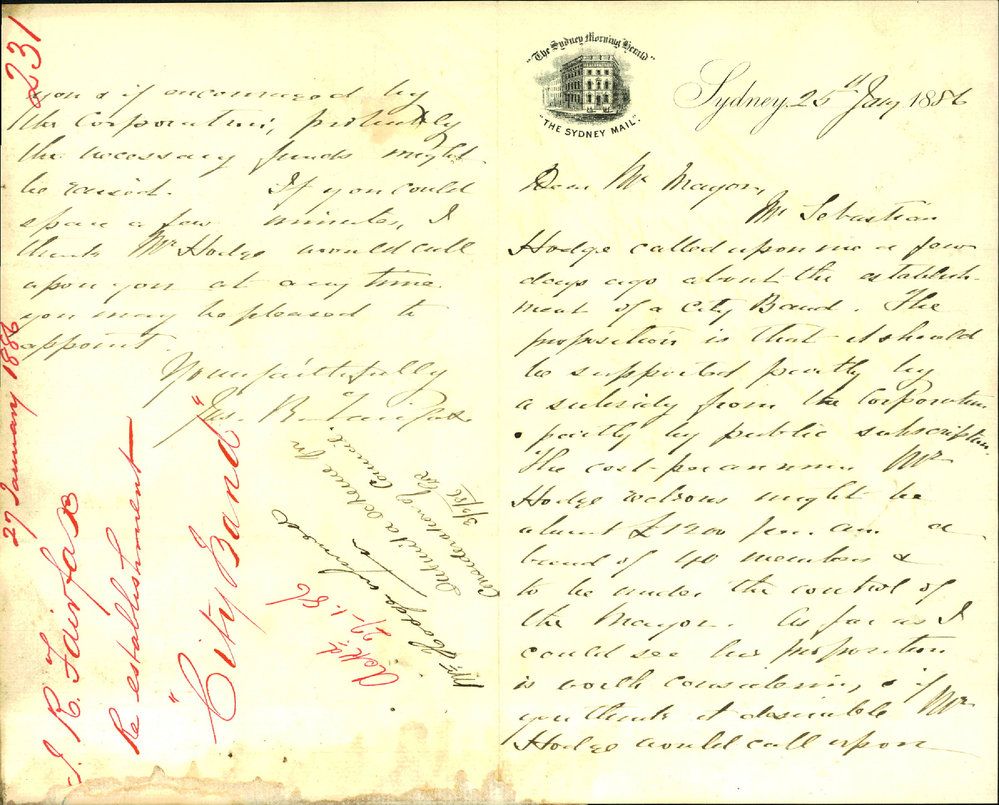 "The Sydney Morning Herald"
"THE SYDNEY MAIL"
Sydney, 25th Jany 1886
Dear Mr Mayor,
Mr Sebastian
Hodge called upon me a few
days ago about the establish-
ment of a City Band. The
proposition is that it should
be supported partly by
a subsidy from the Corporation
& partly by public subscription.
The cost per annum Mr
Hodge reckons might be
about £1200 per an. a
band of 40 members &
to be under the control of
the Mayor. As far as I
could see his proposition
is worth considering, & if
you think it desirable Mr
Hodge would call upon
you & if encouraged by
the Corporation, probably
the necessary funds might
be raised. If you could
spare a few minutes, I
think Mr Hodge would call
upon you at any time
you may be pleased to
appoint.
Yours faithfully
Jas. R. Fairfax
231
27 January 1886
J. R. Fairfax
Re establishment
"City Band"
Ackd
27.1.86
Mr Hodge informed
Submit a scheme for
Consideration of Council.
3/2/86